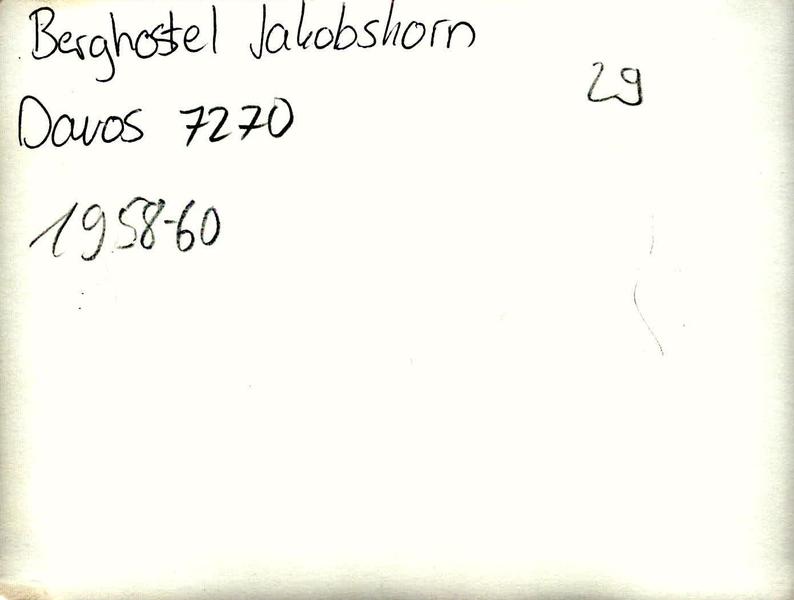 Berghostel Jakobshorn
29
Davos 7270
1958-60